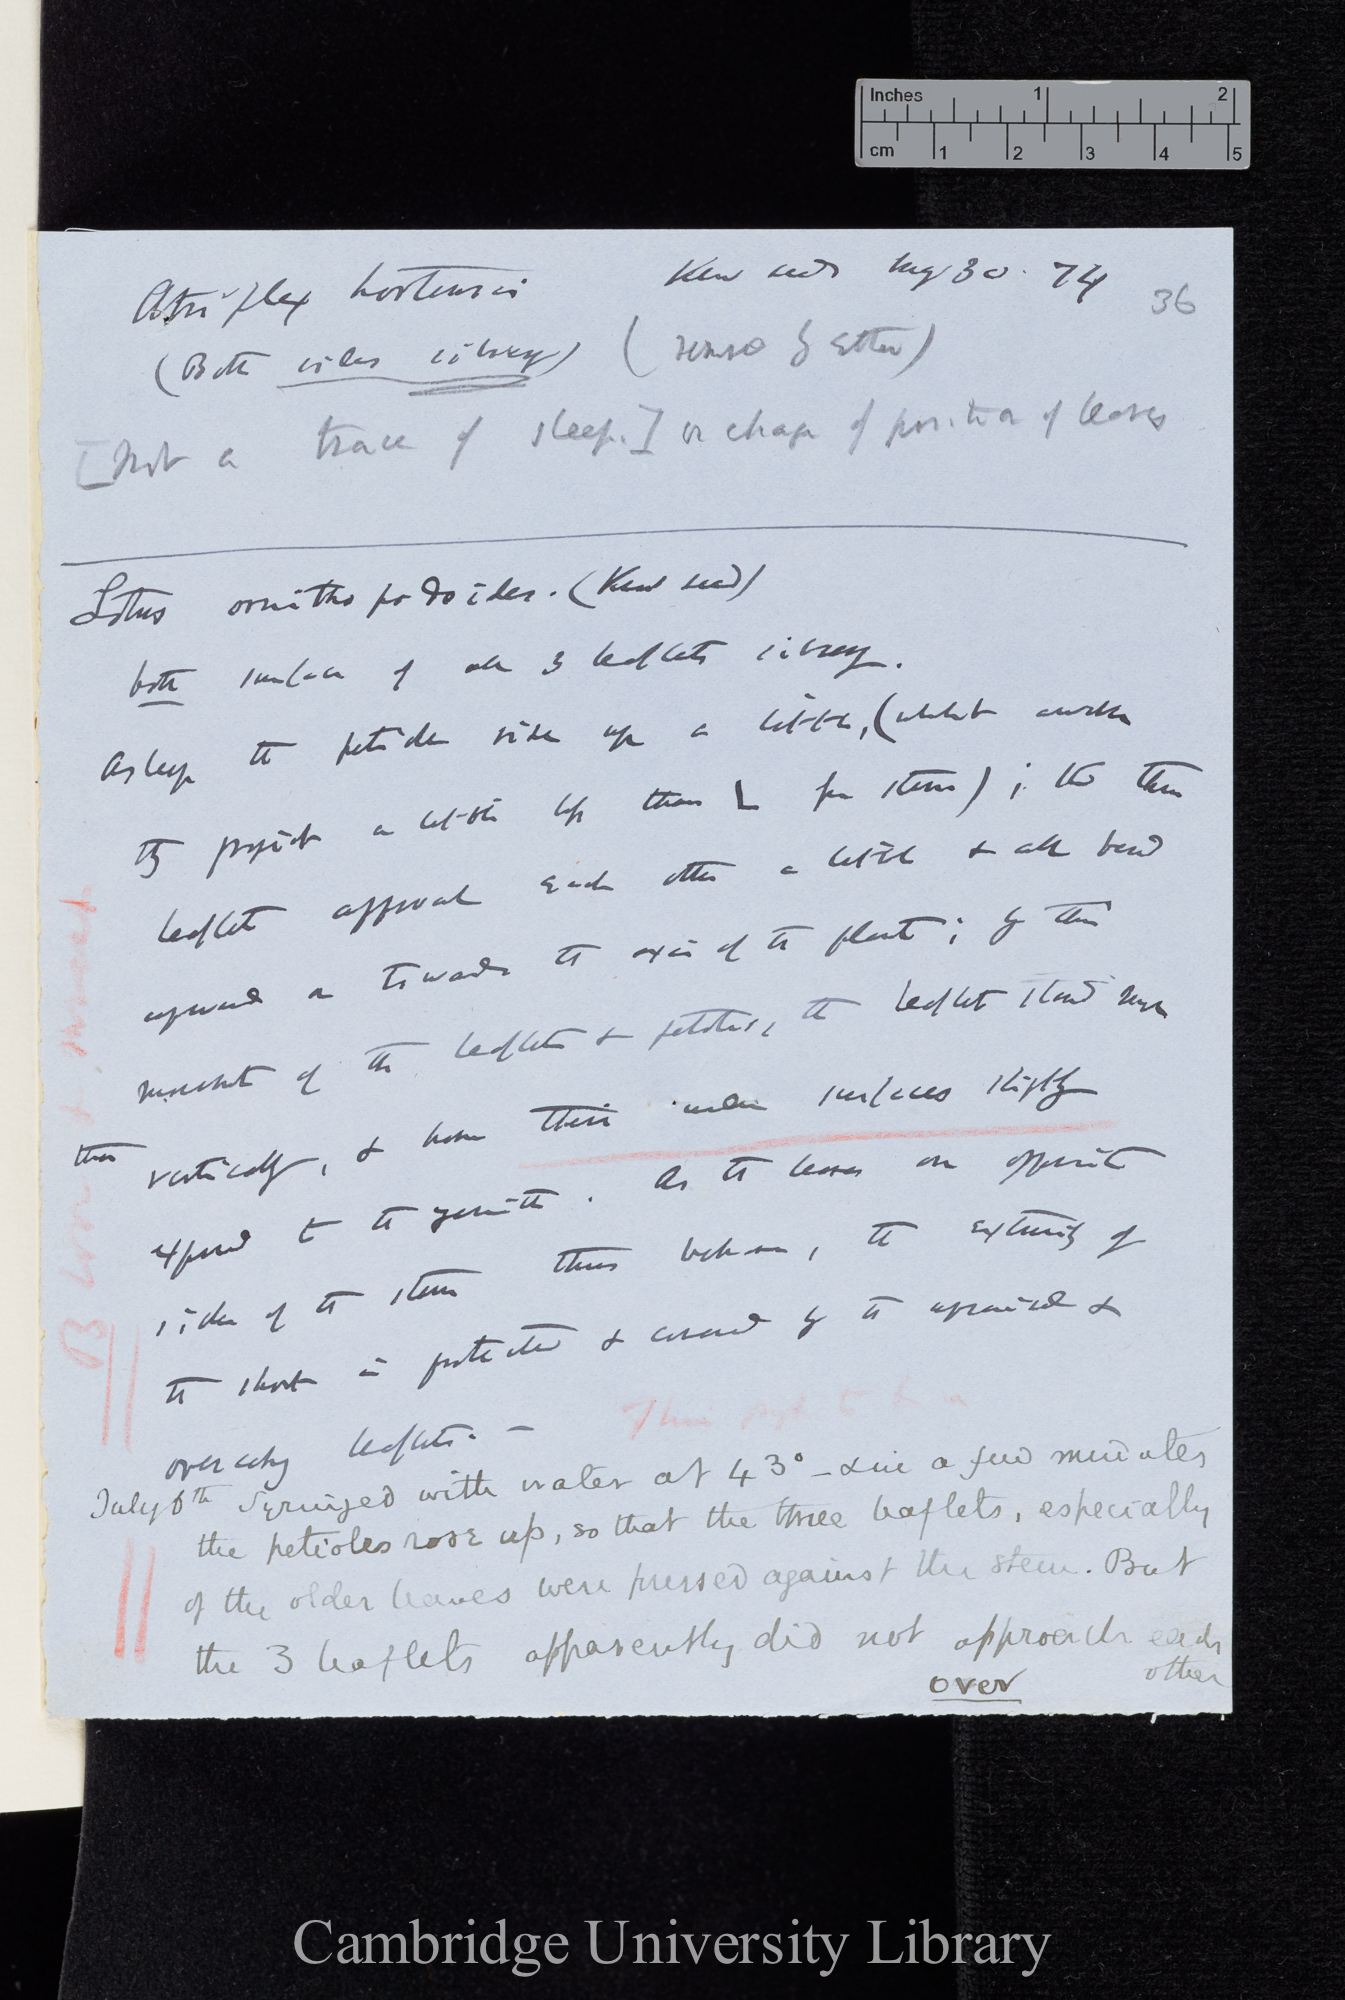 Inches 1 2
cm 1 2 3 4 5
Atriplex hortensis Kew seeds May 30. 74 36
(Both sides silvery) ( by Ether)
[Not a trace of sleep.] or change of position of leaves
Lotus ornithopodoides. (Kew seed)
both surfaces of all 3 leaflets silvery.
Asleep the petioles rise up a little, (whilst awake
they project a little up than L from stem) ; the three
leaflets approach each other a little & all bend
upward or towards the axis of the plant ; by this
movement of the leaflets & petioles, the leaflets stand
than vertically, & have their under surfaces slightly
exposed to the zenith. As the leaves on opposite
sides of the stem thus behave, the extremity of
the shoot is protected & covered by the upraised &
overarching leaflets. —
July 6th Syringed with water at 43° — & in a few minutes
the petioles rose up, so that the three leaflets, especially
of the older leaves were pressed against the stem. But
the 3 leaflets apparently did not approach each
other
over
Cambridge University Library